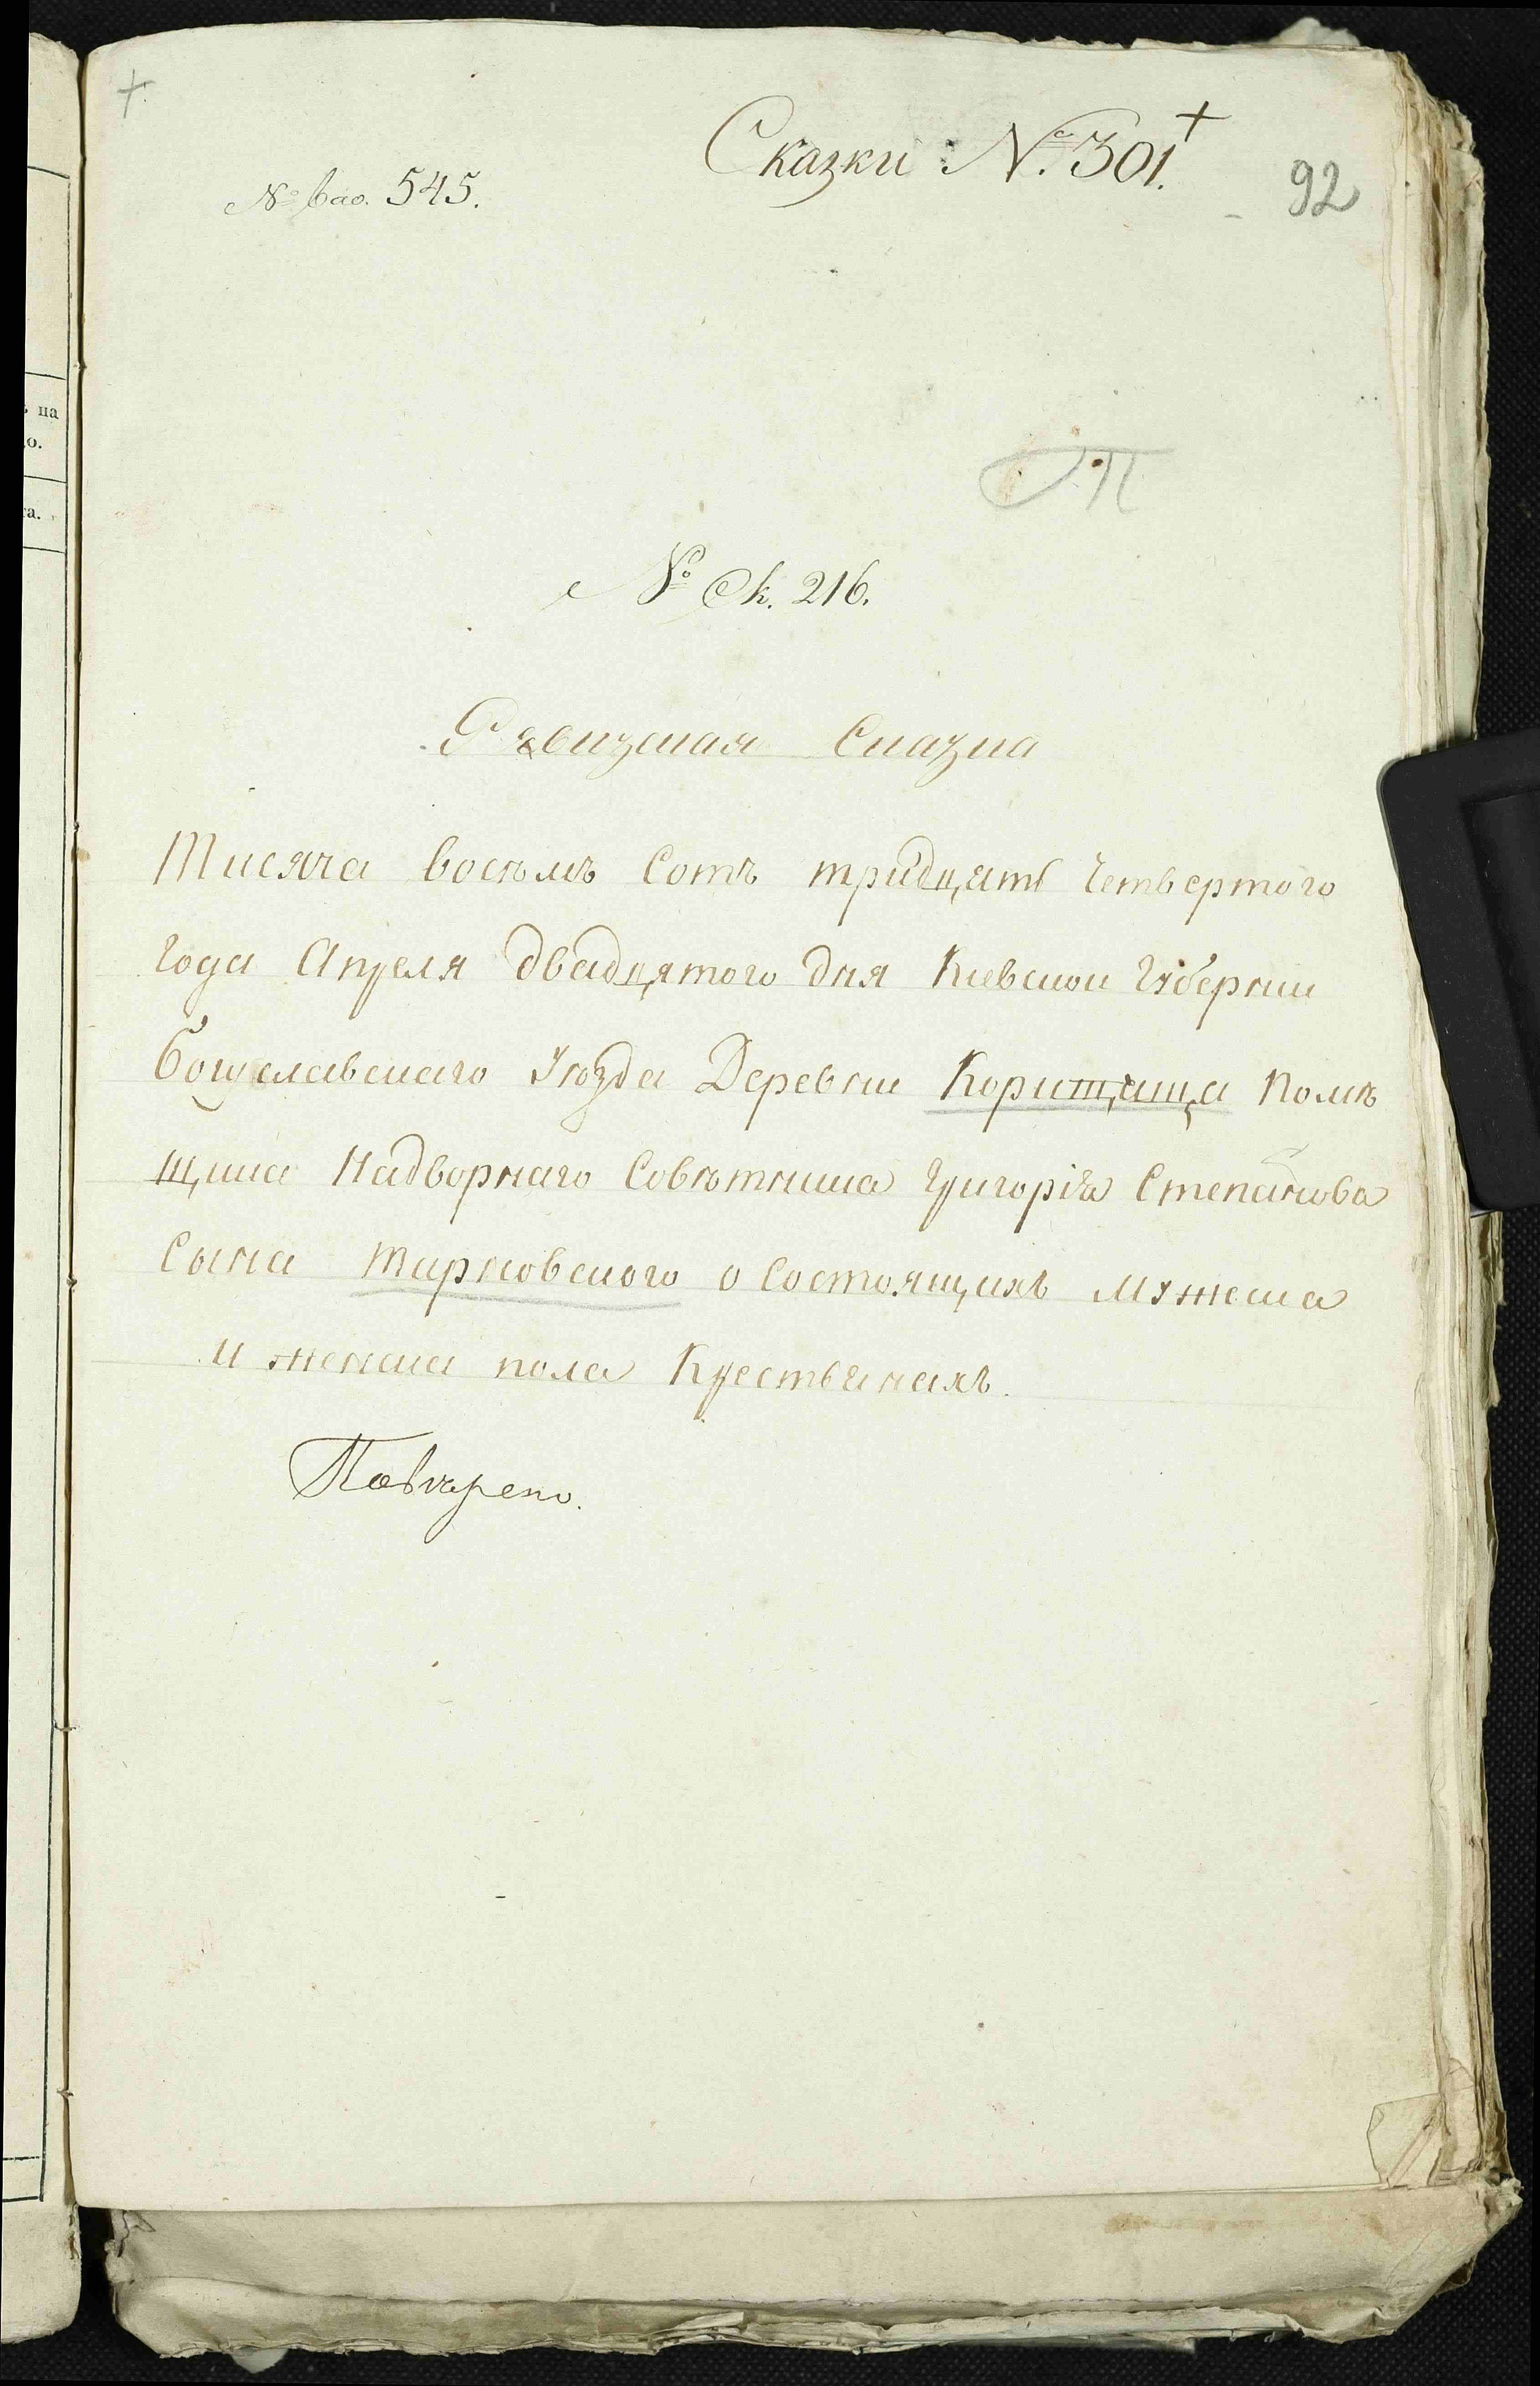 Сказки № 301.
№ вхо. 545.
92
П
№ Ск. 216.
Ревизская Сказка
Тисяча восѣмъ Сотъ тридцять Четвертого
Года Апреля двадцятого дня Киевской Губернии
Богуславскаго Уѣзда Деревни Коритища Помѣ
щика Надворнаго Совѣтника Григорія Степанова
Сына Тарновского о Состоящихъ Мужеска
и женска пола Крестьянахъ.
на
о.
а.